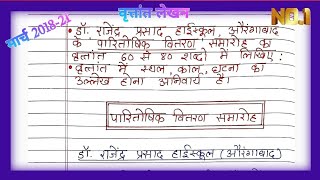 वृत्तांत-लेखन
मार्च 2018-21
NO.1
• डॉ. राजेंद्र प्रसाद हाईस्कूल, औरंगाबाद
के पारितोषिक वितरण समारोह का
वृत्तांत 60 से 80 शब्दो में लिखिए :
• वृत्तांत में स्थल, काल, घटना का
उल्लेख होना अनिवार्य है।
पारितोषिक वितरण समारोह
डॉ. राजेंद्र प्रसाद हाईस्कूल (औरंगाबाद)